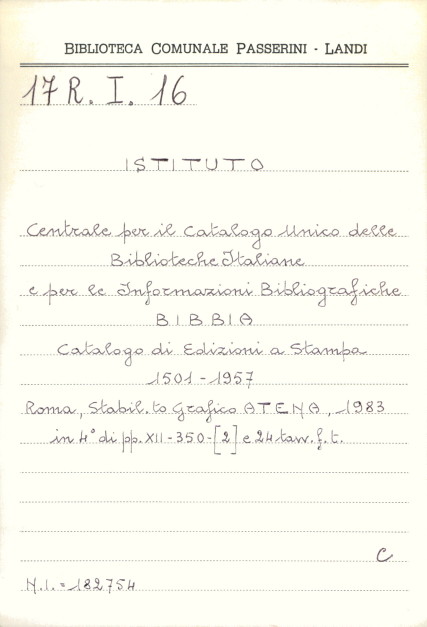 BIBLIOTECA COMUNALE PASSERINI - LANDI
17 R. I. 16
ISTITUTO
Centrale per il Catalogo Unico delle
Biblioteche Italiane
e per le Informazioni Bibliografiche
BIBBIA
Catalogo di Edizioni a Stampa
1501-1957
Roma, Stabil.to Grafico ATENA, 1983
in 4° di pp. XII-350-[2] e 24 tavv. f. t.
C
N.I. = 182754